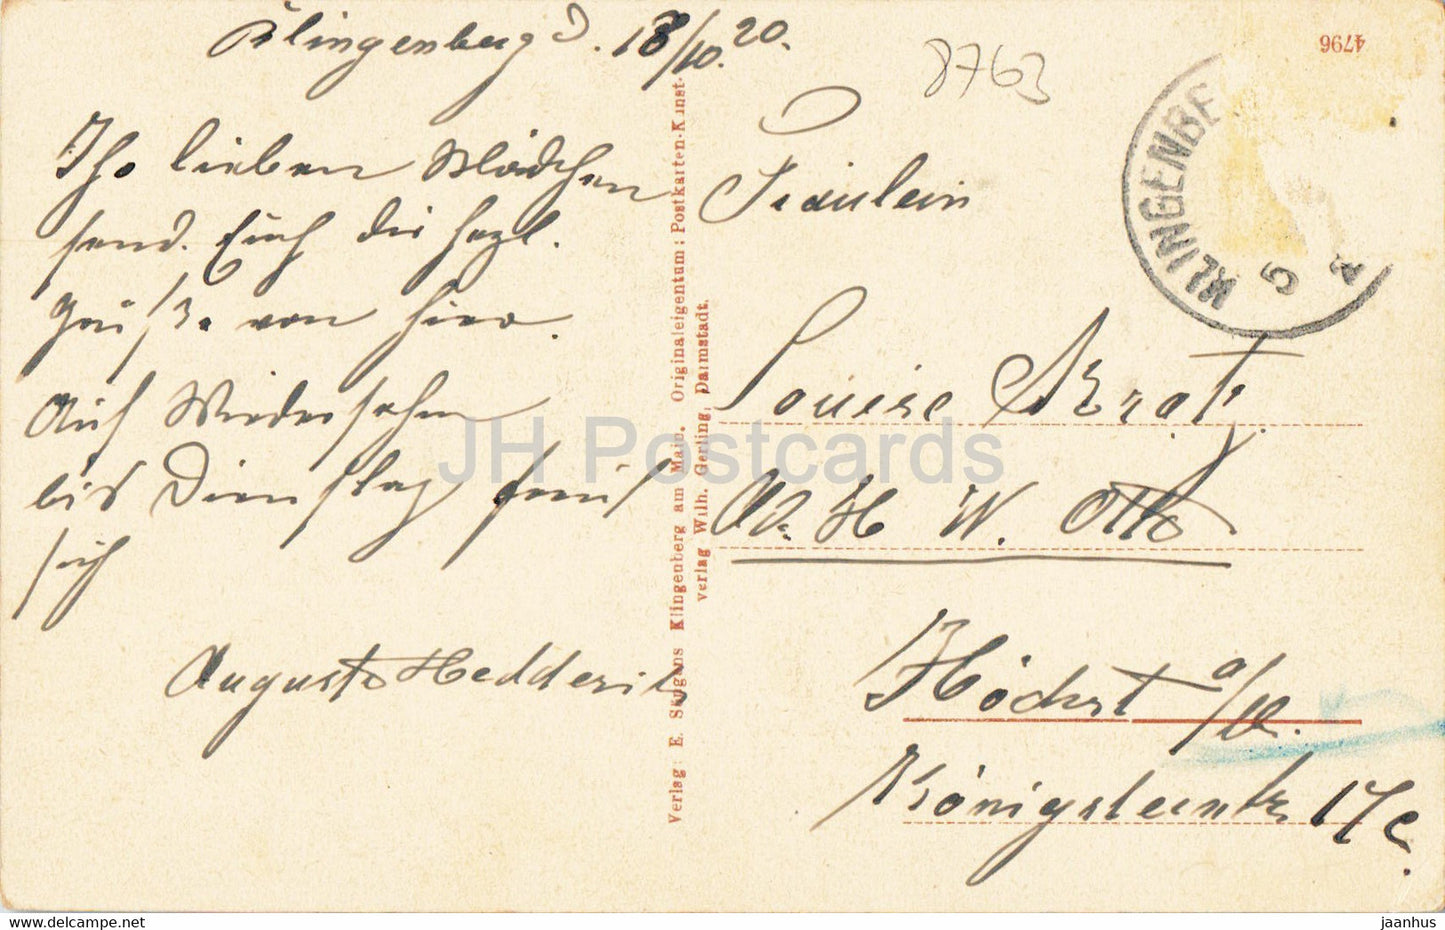 Klingenberg d. 18/10.20.
Ihr lieben Mädchen
send. Euch die herzl.
Grüße von hier.
Auf Wiedersehen
bis Dienstag freut
sich
Auguste Hedderich
Verlag: E. Süngens Klingenberg am Main. Originaleigentum: Postkarten-Kunst-
verlag Wilh. Gerling, Darmstadt.
8763
4796
KLINGENBE
5
Fräulein
Louise
W. Otto
Höchst a/M.
Königsteinstr 17c.
JH Postcards
www.delcampe.net
jaanhus